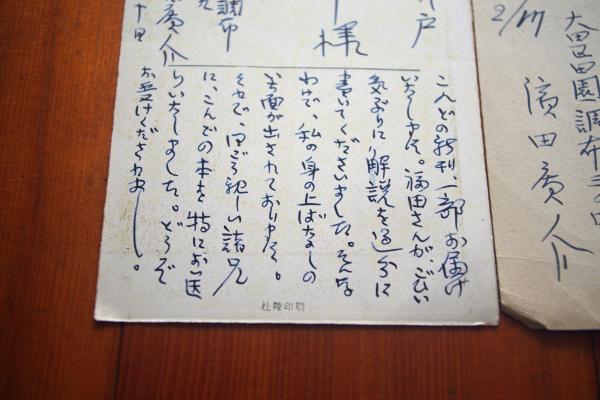 大田区田園調布
濱田廣介
2/17
戸
様
調布
廣介
こんどの新刊一部お届け
いたします。福田さんが、ごひい
気ぶりに解説を過分に
書いてくださいました。そんな
わけで、私の身の上ばなしの
面が出されており
それで、日ごろ親しい諸兄
に、こんどの本を特にお送
りいたしました。どうぞ
お受けくださいまし。
社陵印刷